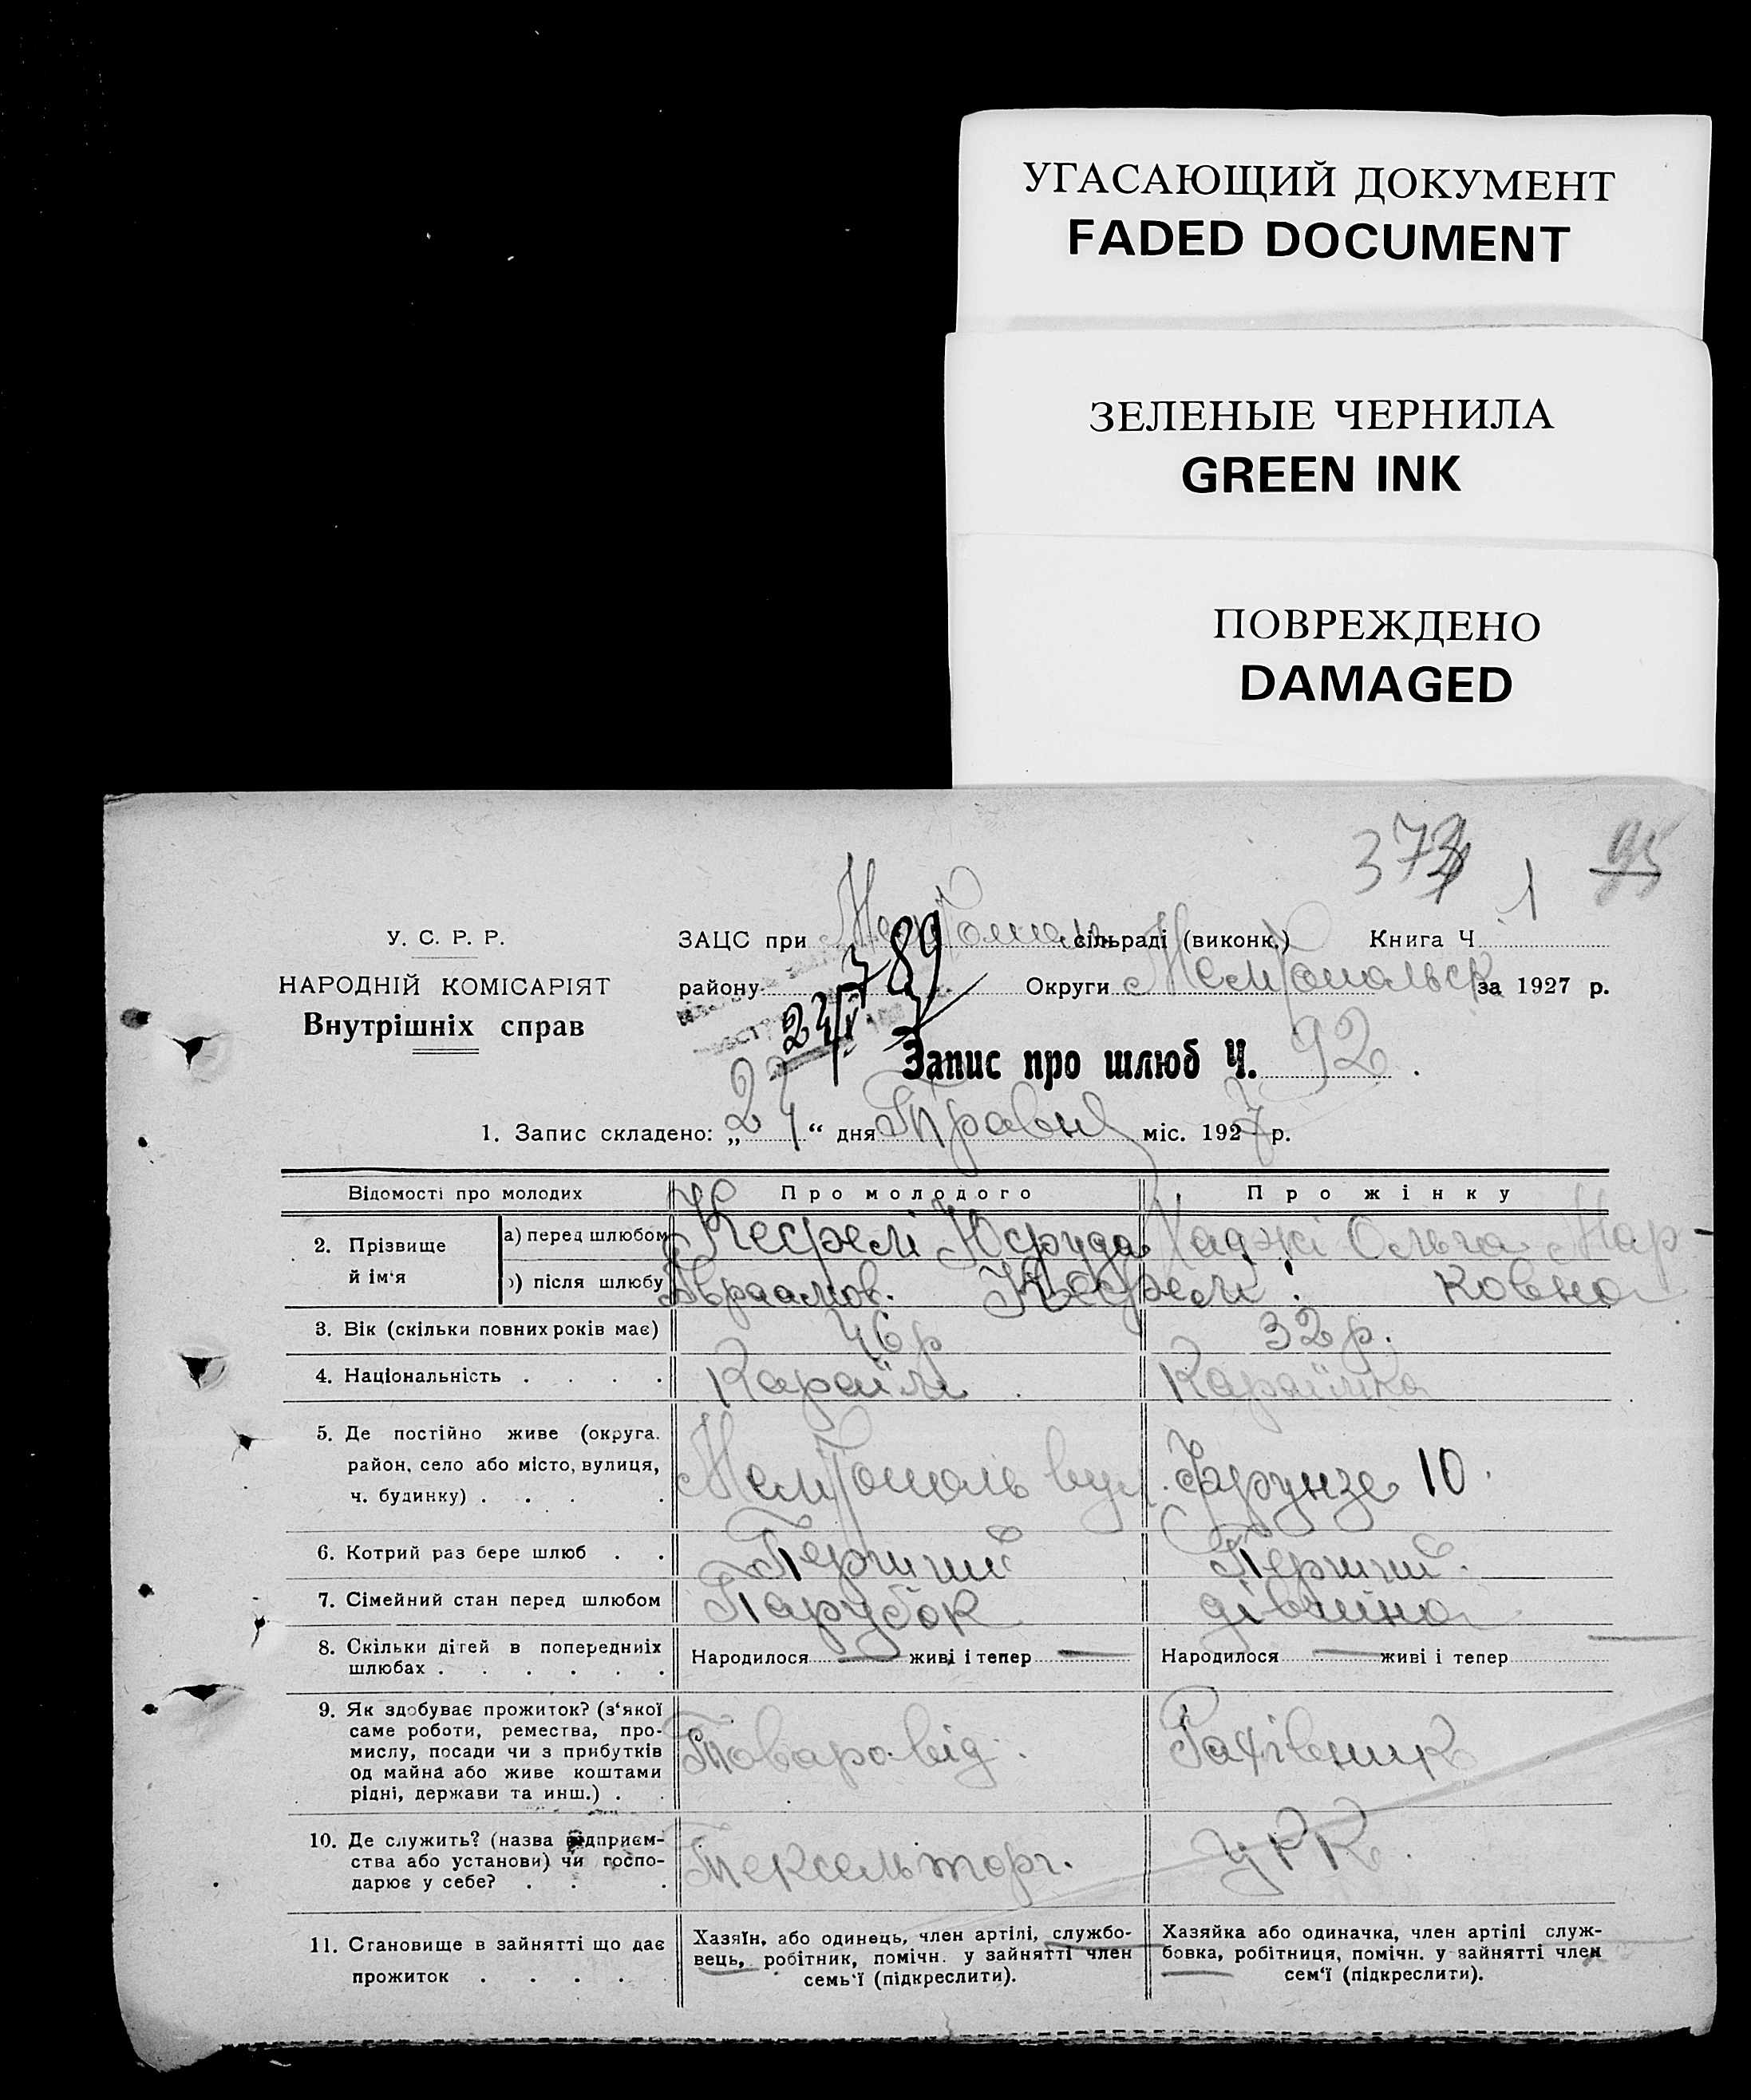 УГАСАЮЩИЙ ДОКУМЕНТ
FADED DOCUMENT
ЗЕЛЕНЫЕ ЧЕРНИЛА
GREEN INK
ПОВРЕЖДЕНО
DAMAGED
1
95
У. С. Р. Р.
НАРОДНІЙ КОМІСАРІЯТ
Внутрішніх справ
ЗАЦС при Мелітополь сільраді (виконк.) Книга Ч
789
району Округи Мелітопольск за 1927 р.
Запис про шлюб Ч. 92.
1. Запис складено: „24“ дня Травня міс. 1927 р.
Відомості про молодих Про молодого Про жінку
2. Прізвище й ім'я
а) перед шлюбом Кефелі Юфуда Хаджі Ольга Мар-
б) після шлюбу Авраамов. Кефелі ковна
3. Вік (скільки повних років має) 46 р 32 р.
4. Національність . . . . Караїм Караїмка
5. Де постійно живе (округа.
район, село або місто, вулиця,
ч. будинку) . . . . Мелітополь вул. Фрунзе 10.
6. Котрий раз бере шлюб . . Перший Перший.
7. Сімейний стан перед шлюбом Парубок дівчина
8. Скільки дітей в попередніїх
шлюбах . . . . . .
Народилося — живі і тепер — Народилося — живі і тепер
9. Як здобуває прожиток? (з'якої
саме роботи, ремества, про-
мислу, посади чи з прибутків
од майна або живе коштами
рідні, держави та инш.) . .
Товаровід. Рахівник
10. Де служить? (назва відприєм-
ства або установи) чи госпо-
дарює у себе? . . .
Тексельторг. УРК.
11. Становище в зайнятті що дає
прожиток . . . . .
Хазяїн, або одинець, член артілі, службо-
вець, робітник, помічн. у зайнятті член
семь'ї (підкреслити).
Хазяйка або одиначка, член артілі служ-
бовка, робітниця, помічн. у зайнятті член
сем'ї (підкреслити).